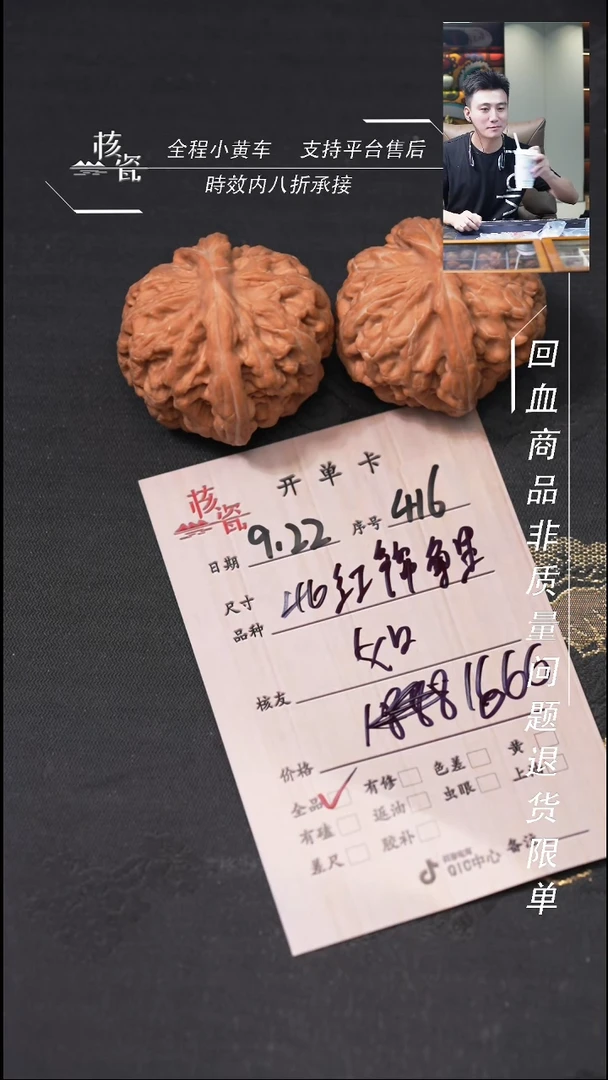 核瓷
全程小黄车 支持平台售后
時效内八折承接
回血商品非质量问题退货限单
核瓷
开单卡
日期 9.22 序号 416
尺寸 46红锦鲤
品种
核友
价格 1666
全品 有修 色差 黄
有磕 返油 虫眼 上
差尺 胶补
QIC中心 备注